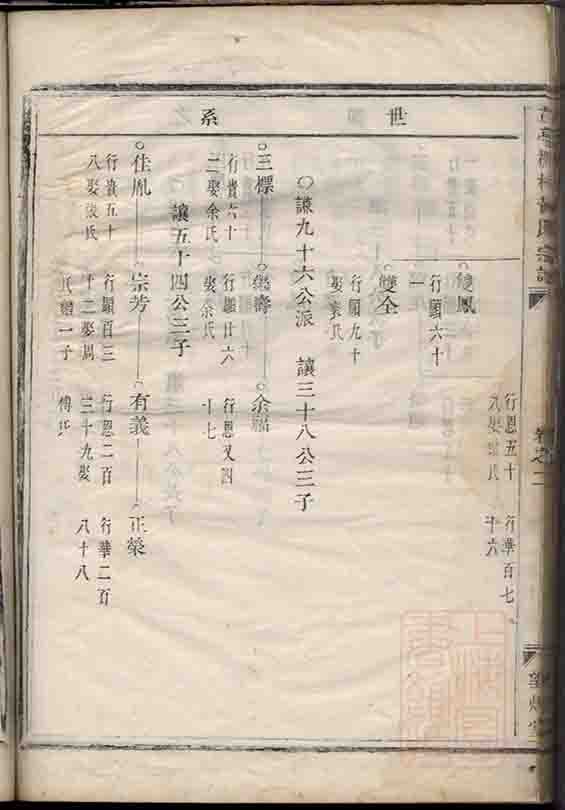 世系
行恩五十
行華百七
十六
雙鳳
行顯六十
一
雙全
行顯九十
娶袁氏
謙九十六公派 讓三十八公三子
三標
行貴六十
二娶余氏
鶴壽
行顯廿六
娶余氏
余福
行恩又四
十七
讓五十四公三子
佳胤
行貴五十
八娶
氏
宗芳
行顯百三
十二娶周
氏繼一子
有義
行恩二百
三十九娶
傅氏
正榮
行華二百
八十八
氏宗譜
卷之二